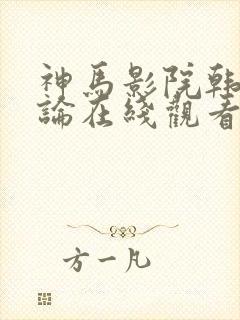 神馬影院韩
論在綫觀看
方一凡